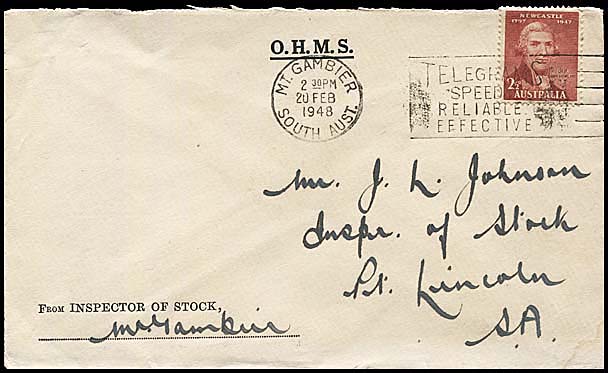 NEWCASTLE
1797 1947
2½D AUSTRALIA
O.H.M.S.
MT. GAMBIER
2 30PM
20 FEB
1948
SOUTH AUST.
SPEED
RELIABLE
EFFECTIVE
Mr. J. L. Johnson
Inspr. of Stock
Pt. Lincoln
S.A.
FROM INSPECTOR OF STOCK,
Mt Gambier